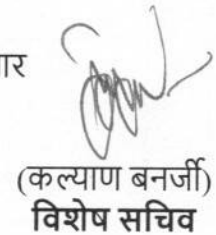 (कल्याण बनर्जी)
विशेष सचिव